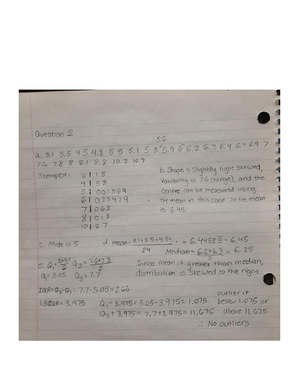 Question 2
5.6
a. 3.1 3.5 4.5 4.8 5 5 5.1 5.5 5.9 6 6.2 6.3 6.4 6.7 6.9 7
7.6 7.8 8 8.1 8.8 10.2 10.7
Stemplot:
3 | 1 5
4 | 5 8
5 | 001569
6 | 023479
7 | 068
8 | 018
10 | 27
b. Shape is slightly right skewed,
Variability is 7.6 (range), and the
centre can be measured using
the mean in this case. So the mean
is 6.45
c. Mode is 5
d. mean = = 6.4458 = 6.45
24 Median = = 6.25
Since mean is greater than median,
distribution is skewed to the right
Q1 = 5.05 Q3 = 7.7
IQR = Q3 - Q1 = 7.7 - 5.05 = 2.65
1.5IQR = 3.975
Q1 - 3.975 = 5.05 - 3.975 = 1.075
Q3 + 3.975 = 7.7 + 3.975 = 11.675
outlier if
below 1.075 or
above 11.675
∴ No outliers